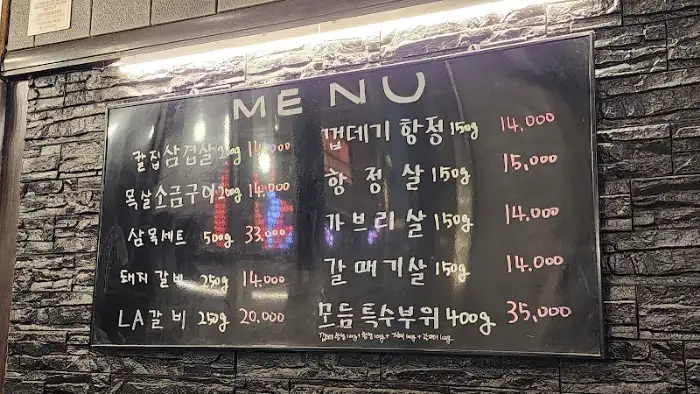 MENU
칼집삼겹살 200g 14.000
목살소금구이 200g 14.000
삼목세트 500g 33.000
돼지갈비 250g 14.000
LA갈비 250g 20.000
껍데기항정 150g 14.000
항정살 150g 15,000
가브리살 150g 14.000
갈매기살 150g 14.000
모듬특수부위 400g 35,000